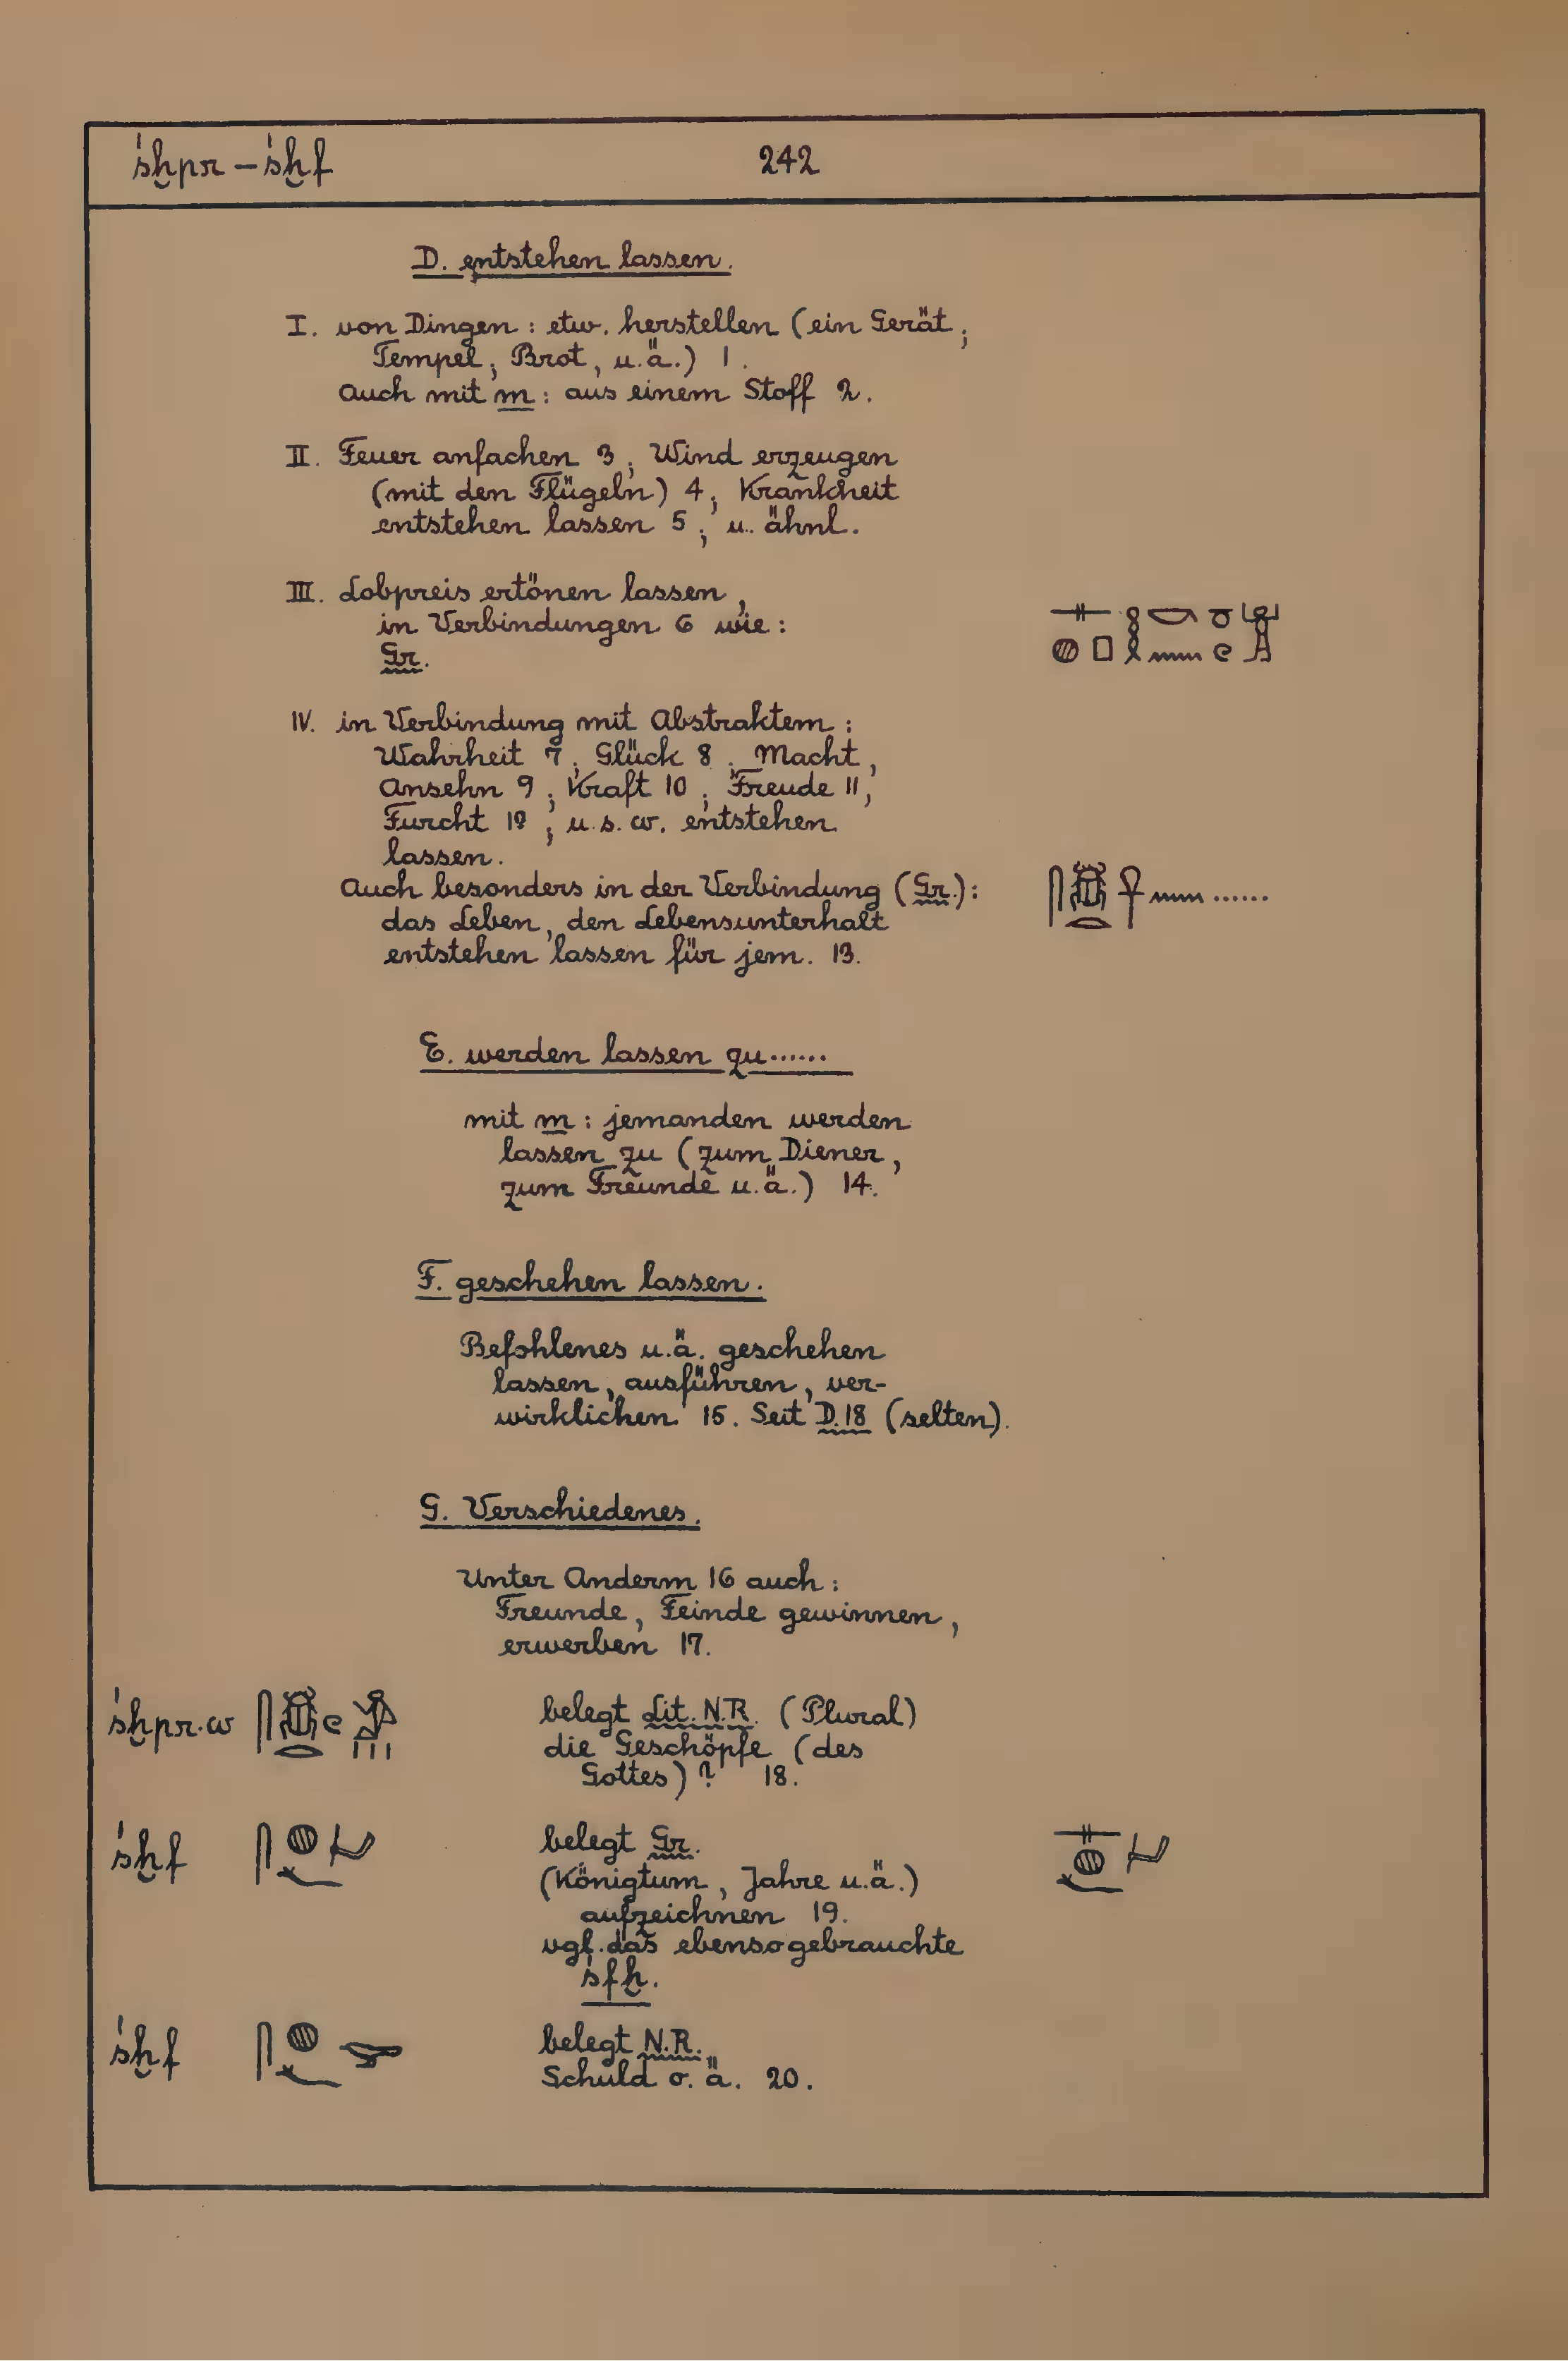 śḫpr – śḫf 242
D. entstehen lassen.
I. von Dingen : etw. herstellen (ein Gerät;
Tempel; Brot, u.ä.) 1.
Auch mit m : aus einem Stoff 2.
II. Feuer anfachen 3; Wind erzeugen
(mit den Flügeln) 4; Krankheit
entstehen lassen 5; u. ähnl.
III. Lobpreis ertönen lassen,
in Verbindungen 6 wie :
Gr.
IV. in Verbindung mit Abstraktem :
Wahrheit 7; Glück 8; Macht,
Ansehn 9; Kraft 10; Freude 11,
Furcht 12; u.s.w. entstehen
lassen.
Auch besonders in der Verbindung (Gr.) : 𓋴𓆣𓂋𓋹𓈖 ......
das Leben, den Lebensunterhalt
entstehen lassen für jem. 13.
E. werden lassen zu......
mit m : jemanden werden
lassen zu (zum Diener,
zum Freunde u.ä.) 14.
F. geschehen lassen.
Befohlenes u.ä. geschehen
lassen, ausführen, ver-
wirklichen 15. Seit D.18 (selten).
G. Verschiedenes.
Unter Anderm 16 auch :
Freunde, Feinde gewinnen,
erwerben 17.
śḫpr.w belegt Lit. N.R. (Plural)
die Geschöpfe (des
Gottes)? 18.
śḫf 𓋴𓐍𓆑 belegt Gr. 𓊃𓐍𓆑
(Königtum, Jahre u.ä.)
aufzeichnen 19.
vgl. das ebenso gebrauchte
śfḫ.
śḫf 𓋴𓐍𓆑 belegt N.R.
Schuld o.ä. 20.